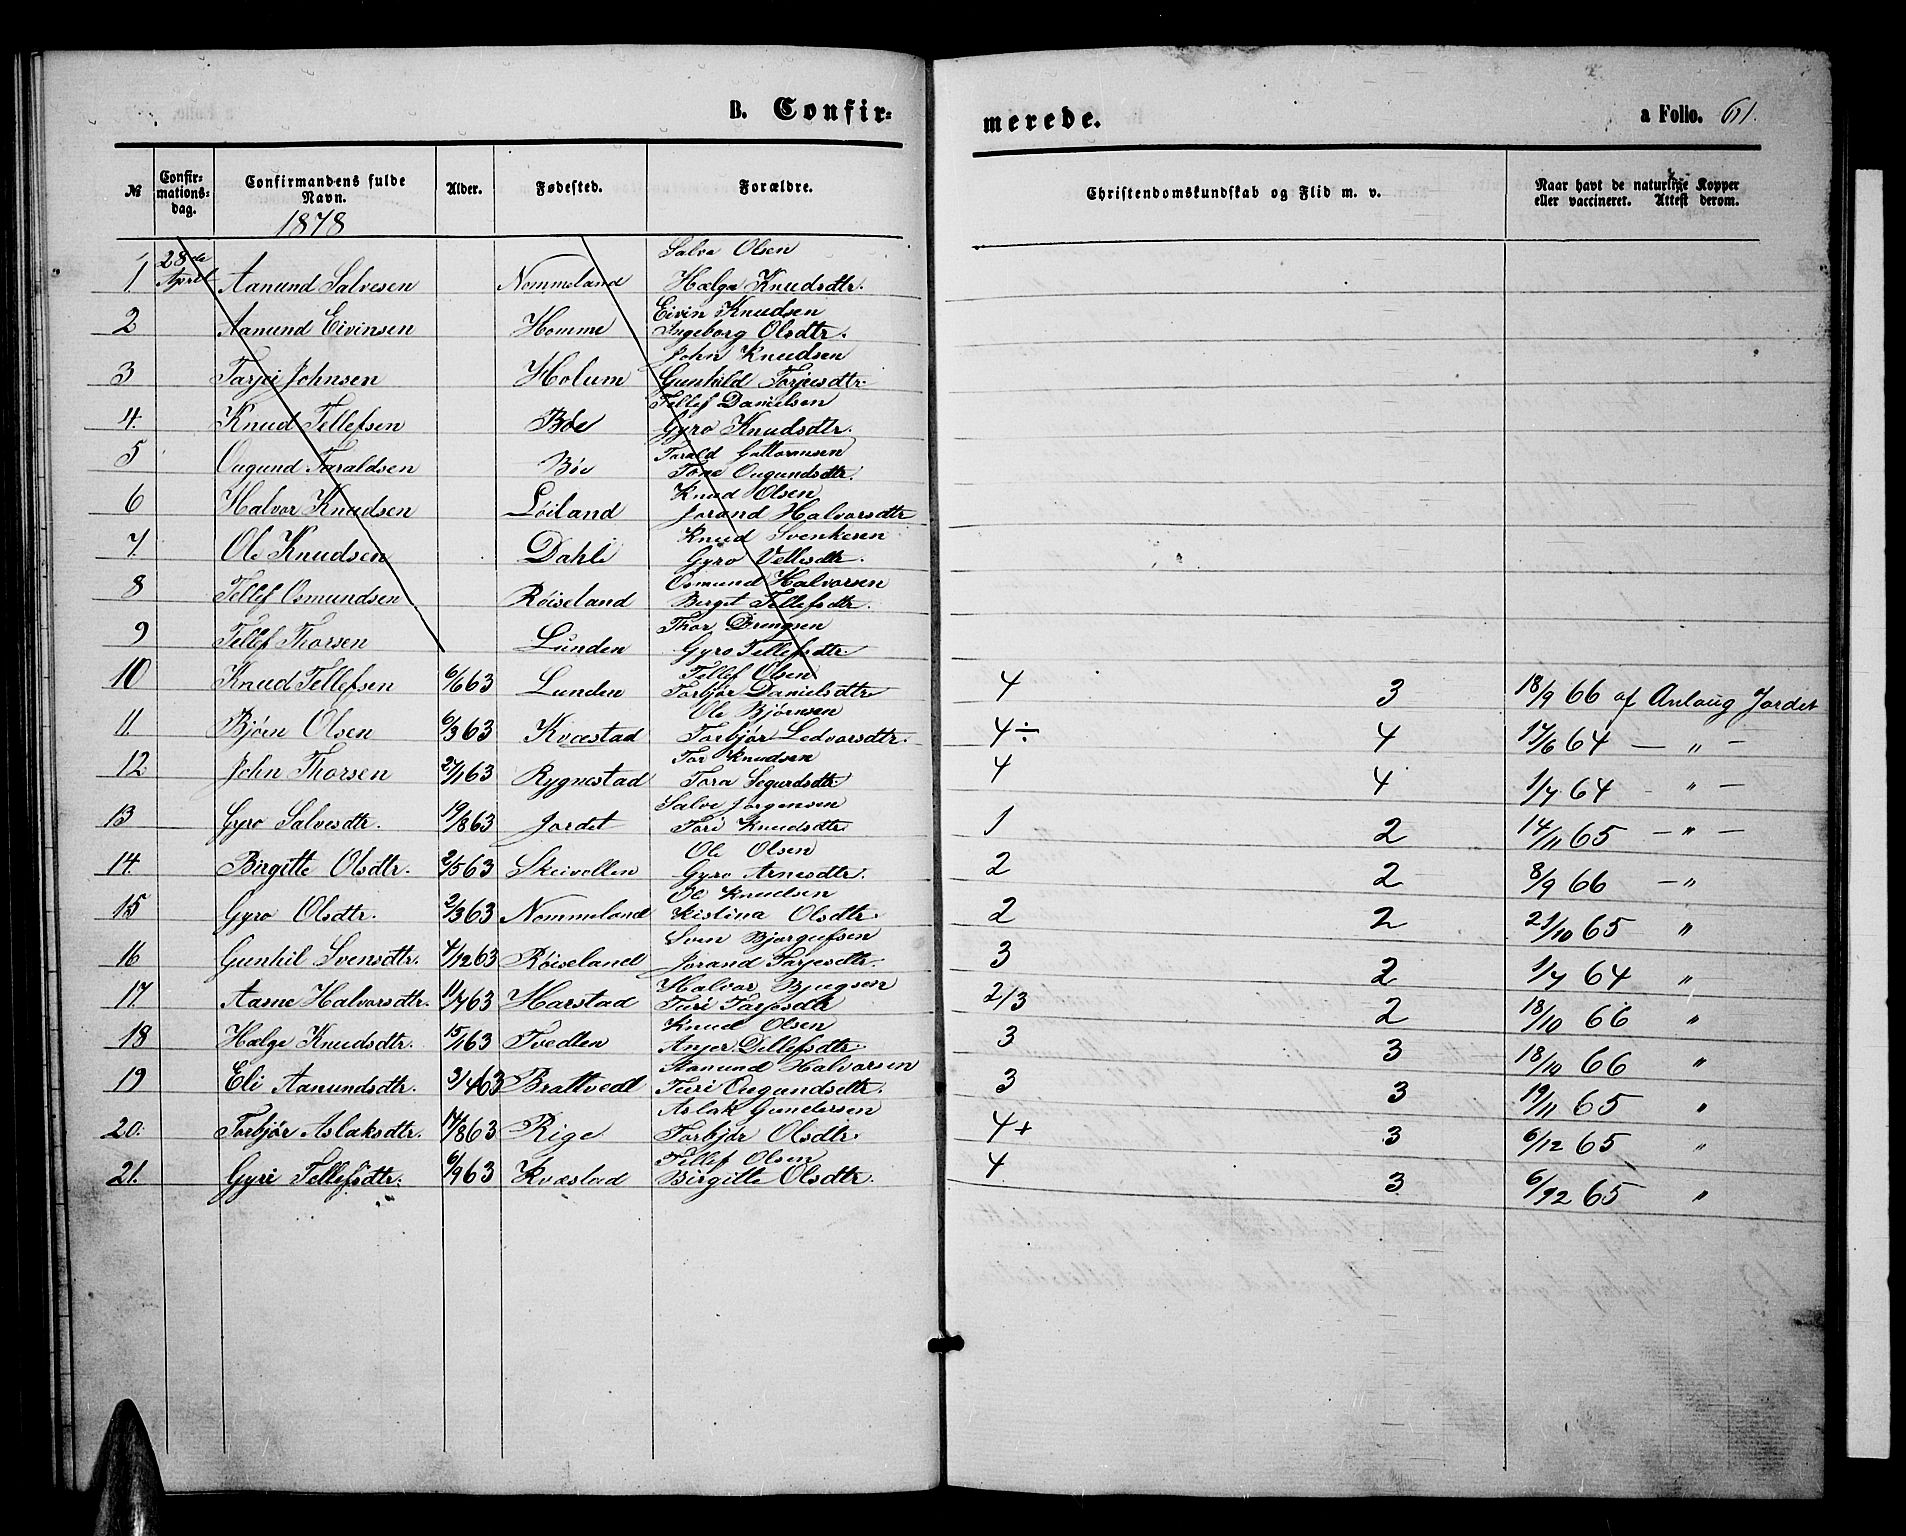 B. Confir=
merede.
a Folio. 61.
№ Confir-mations-dag. Confirmandens fulde Navn. Alder. Fødested. Forældre. Christendomskundskab og Flid m. v. Naar havt de naturlige Kopper eller vaccineret. Attest derom.
1878
28de April
Salve Olsen
1 Aanund Salvesen Nommeland Hælge Knudsdtr.
Eivin Knudsen
2 Aanund Eivinsen Homme Ingeborg Olsdtr.
John Knudsen
3 Tarjei Johnsen Holum Gunhild Torjusdtr.
Tellef Danielsen
4. Knud Tellefsen Bøe Gyro Knudsdtr.
Torald Guttormsen
5 Ougund Taraldsen Bøe Tone Ougundsdtr.
Knud Olsen
6 Halvor Knudsen Løiland Jorand Halvorsdtr
Knud Svenkesen
7. Ole Knudsen Dahle Gyro Vellesdtr.
Osmund Halvorsen
8 Tellef Osmundsen Røiseland Birget Tellefsdtr.
Thor Drengsen
9 Tellef Thorsen Lunden Gyro Tellefsdtr.
Tellef Olsen
10 Knud Tellefsen 6/6 63 Lunden Torbjør Danielsdtr. 4 3 18/9 66 af Anlaug Jordet
Ole Bjørnsen
11. Bjørn Olsen 6/3 63 Kvæstad Torbjør Ledvorsdtr. 4÷ 4 17/6 64 — " —
Tor Knudsen
12 John Thorsen 27/1 63 Rygnestad Tora Segurdsdtr. 4 4 1/7 64 - " —
Salve Jorgensen
13 Gyro Salvesdtr. 19/8 63 Jordet Tori Knudsdtr. 1 2 14/11 65 — " —
Ole Olsen
14. Birgitte Olsdtr. 2/5 63 Skeivollen Gyro Arnesdtr. 2 2 8/9 66 — "
Ol Knudsen
15 Gyro Olsdtr. 2/3 63 Nommeland Kistina Olsdtr. 2 2 21/10 65 "
Sven Bjorgufsen
16 Gunhil Svensdtr. 4/12 63 Røiseland Jorand Tarjesdtr. 3 2 1/7 64 "
Halvor Bjugsen
17. Aasne Halvorsdtr. 11/7 63 Harstad Turi Tarjesdtr 2/3 2 18/10 66 "
Knud Olsen
18 Hælge Knudsdtr. 15/1 63 Tvedten Anjer Dellefsdtr. 3 3 18/10 66 "
Aanund Halvorsen
19 Eli Aanundsdtr. 3/4 63 Brattvedt Turi Ougundsdtr. 3 3 19/11 65 "
Aslak Gundersen
20. Torbjør Aslaksdtr. 17/8 63 Rige Torbjør Olsdtr. 4+ 3 6/12 65 "
Tellef Olsen
21. Gyri Tellefsdtr. 6/9 63 Kvæstad Birgitte Olsdtr. 4 3 6/12 65 "